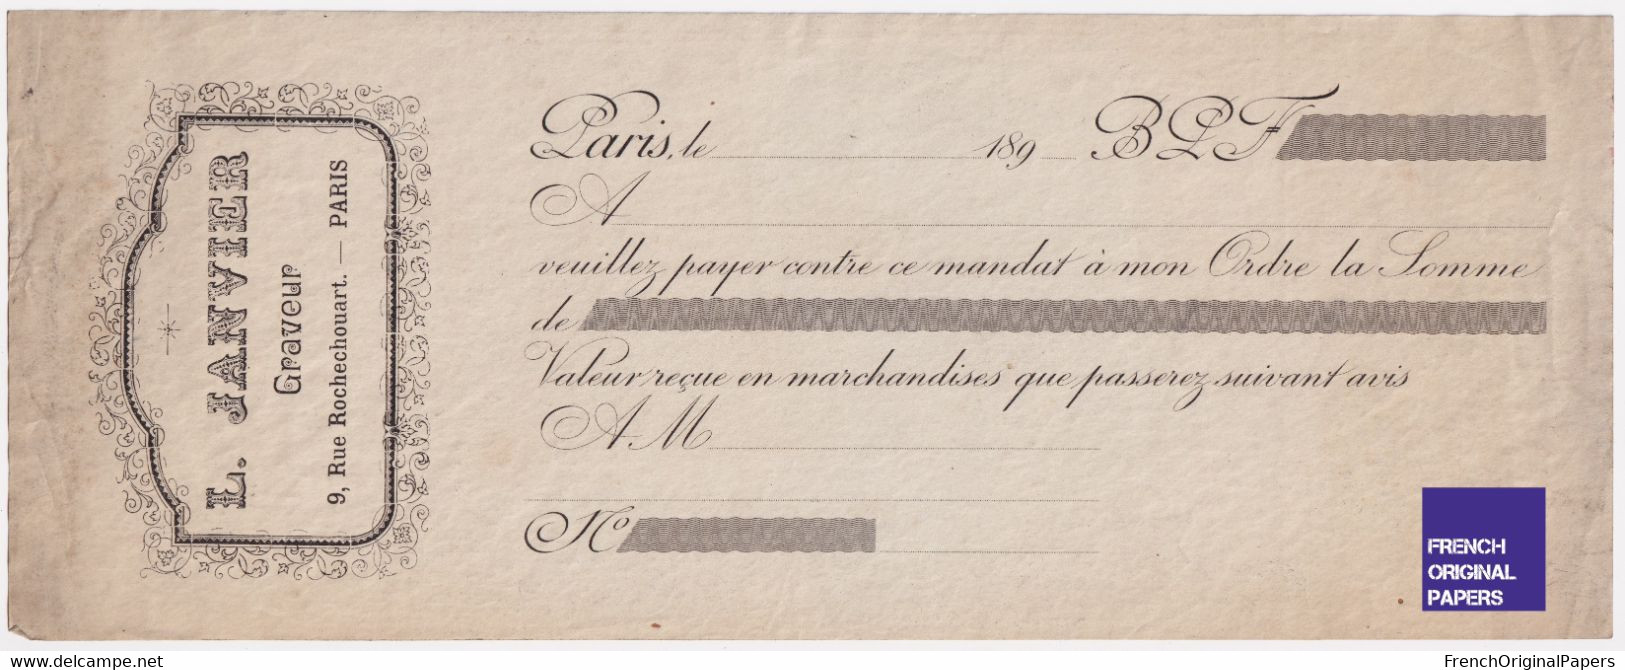 L. JANVIER
Graveur
9, Rue Rochechouart. — PARIS
Paris, le 189 B.P.F.
A
veuillez payer contre ce mandat à mon Ordre la Somme
de
Valeur reçue en marchandises que passerez suivant avis
A M
No
FRENCH
ORIGINAL
PAPERS
www.delcampe.net
FrenchOriginalPapers